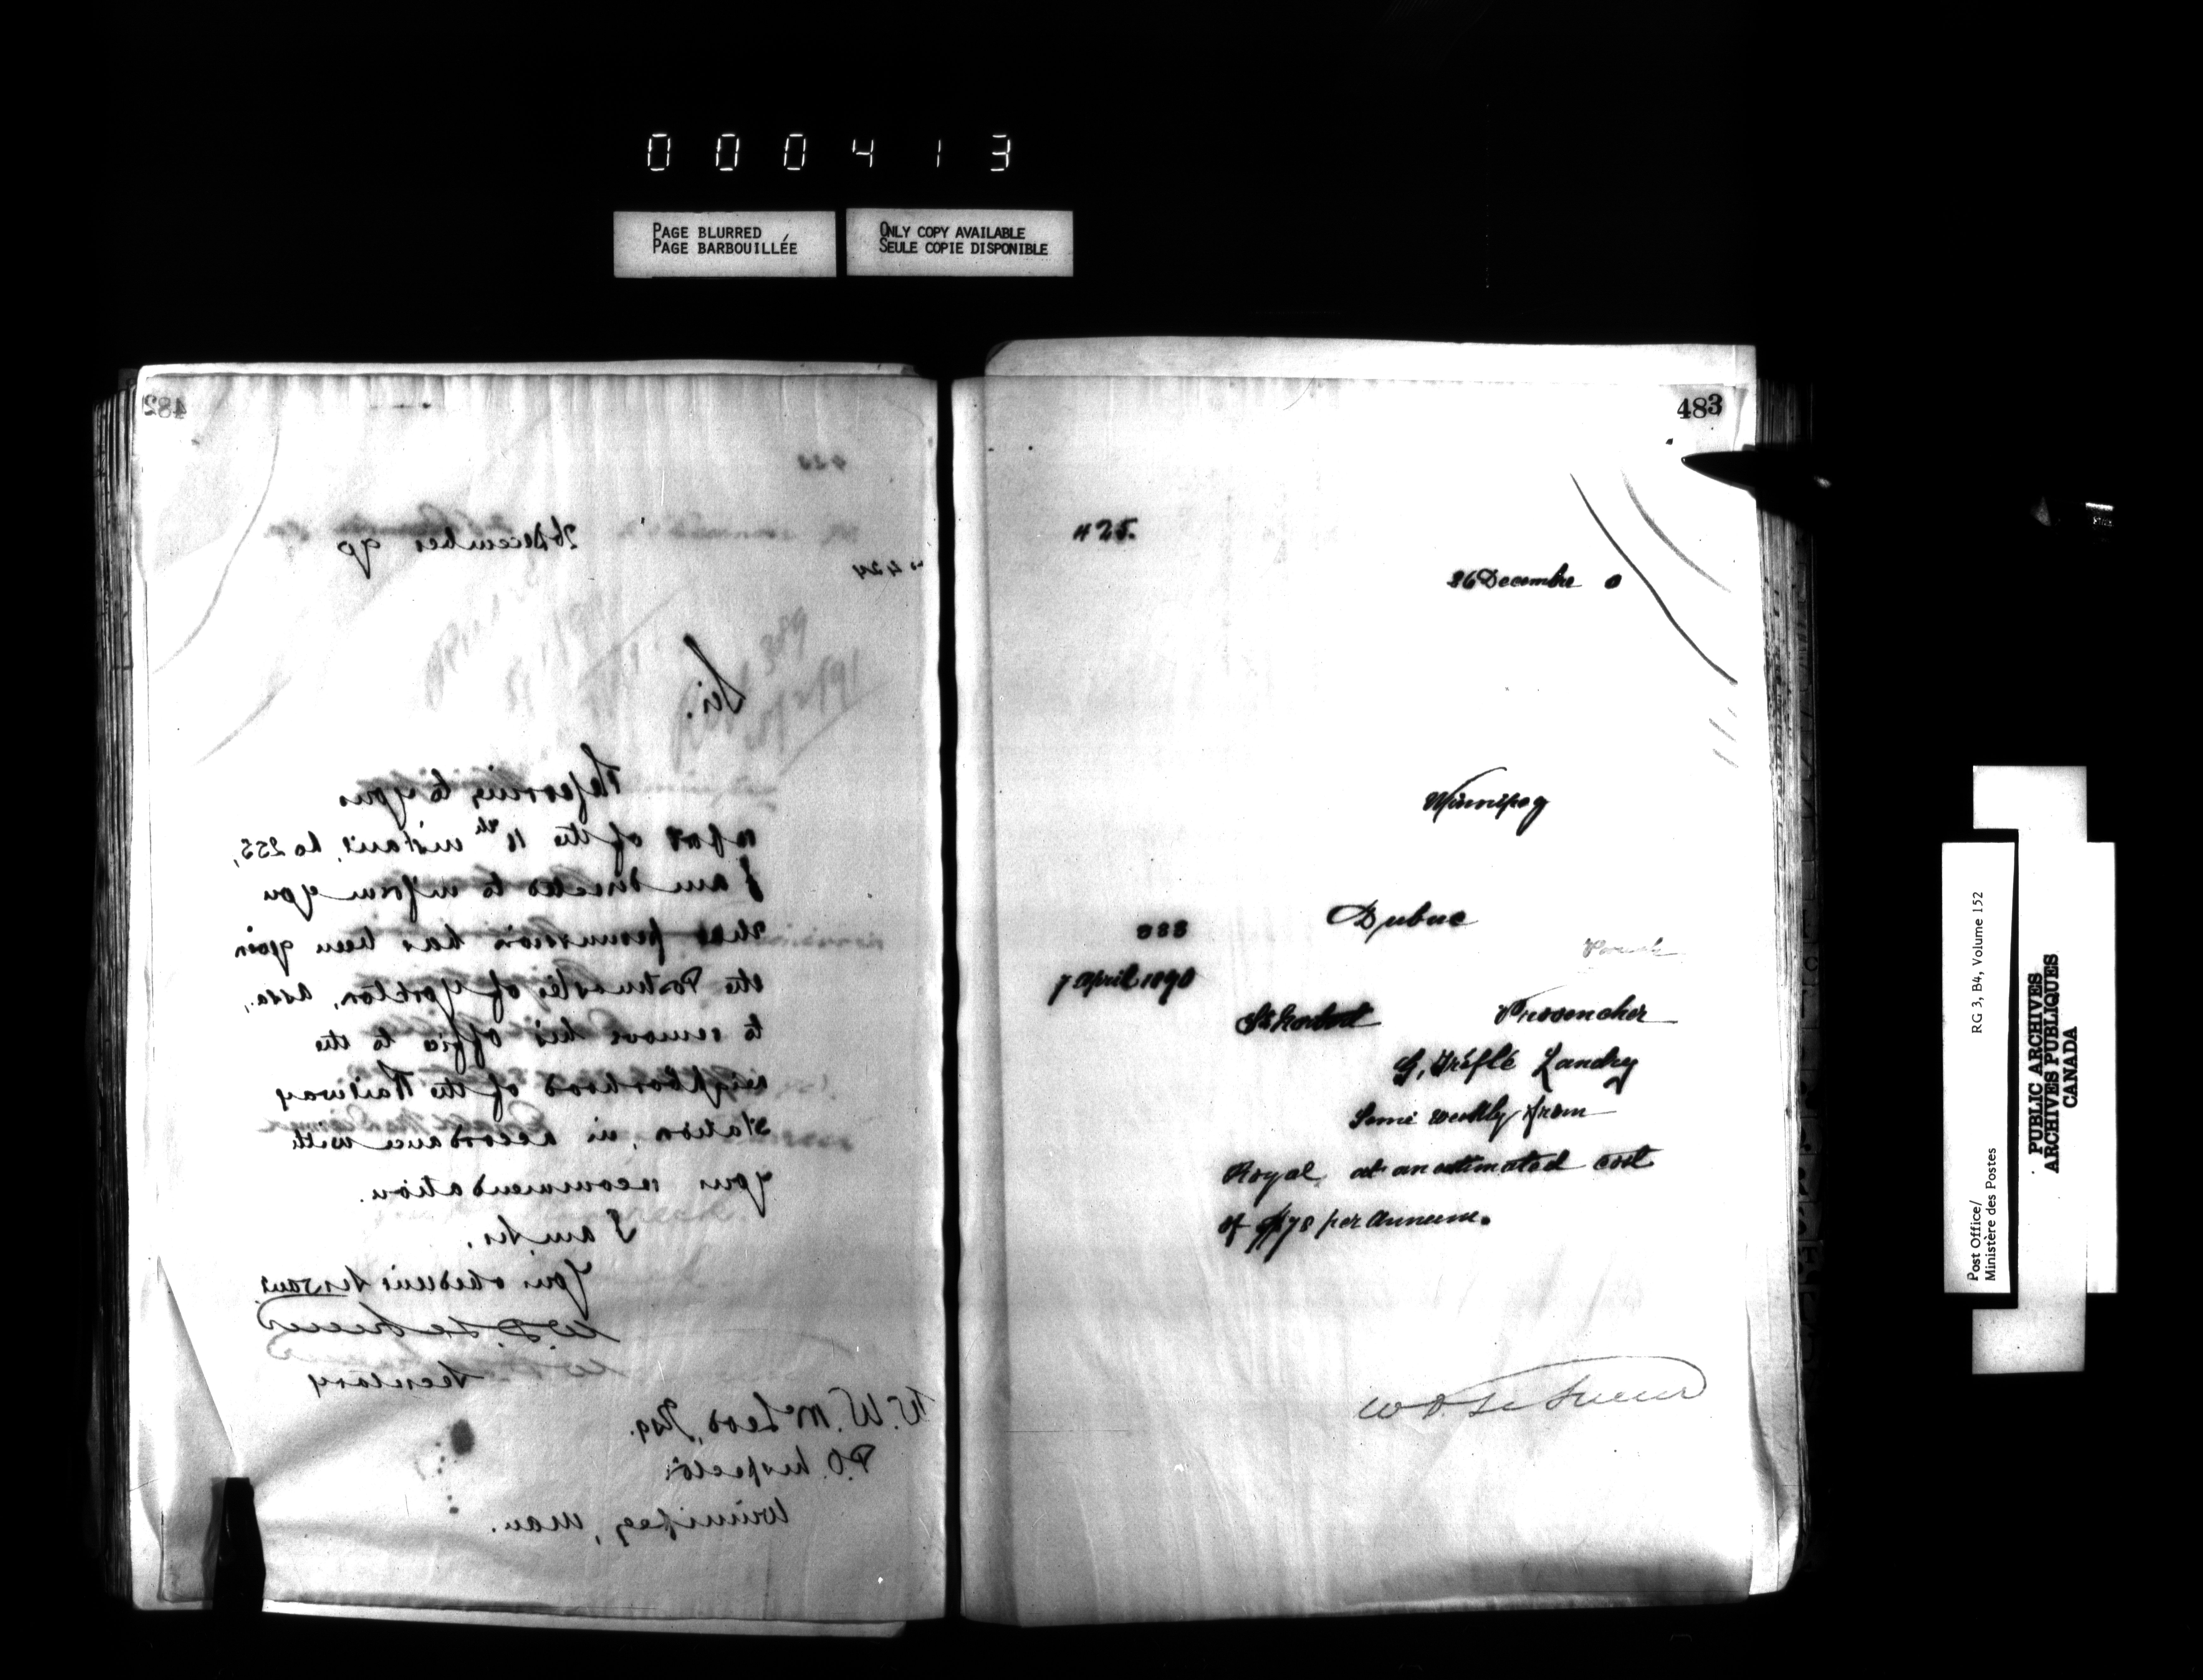 000413
PAGE BLURRED
PAGE BARBOUILLÉE
ONLY COPY AVAILABLE
SEULE COPIE DISPONIBLE
482
26 December 90
No 424
Sir.
Referring to your
report of the 11th instant, No 255,
I am directed to inform you
that permission has been given
the Postmaster of Yorkton, Assa.,
to remove his office to the
neighborhood of the Railway
Station, in accordance with
your recommendation.
I am, Sir,
Your obedient Servant
W D LeSueur
Secretary
W. W. McLeod, Esq.
P.O. Inspector
Winnipeg, Man.
483
425.
26 Decembre 0
Winnipeg
Dubuc
388
7 April 1890
Provencher
G, Tréflé Landry
Semi weekly from
Royal, at an estimated cost
of $78 per Annum.
W D. LeSueur
Post Office/
Ministère des Postes
RG 3, B4, Volume 152
PUBLIC ARCHIVES
ARCHIVES PUBLIQUES
CANADA